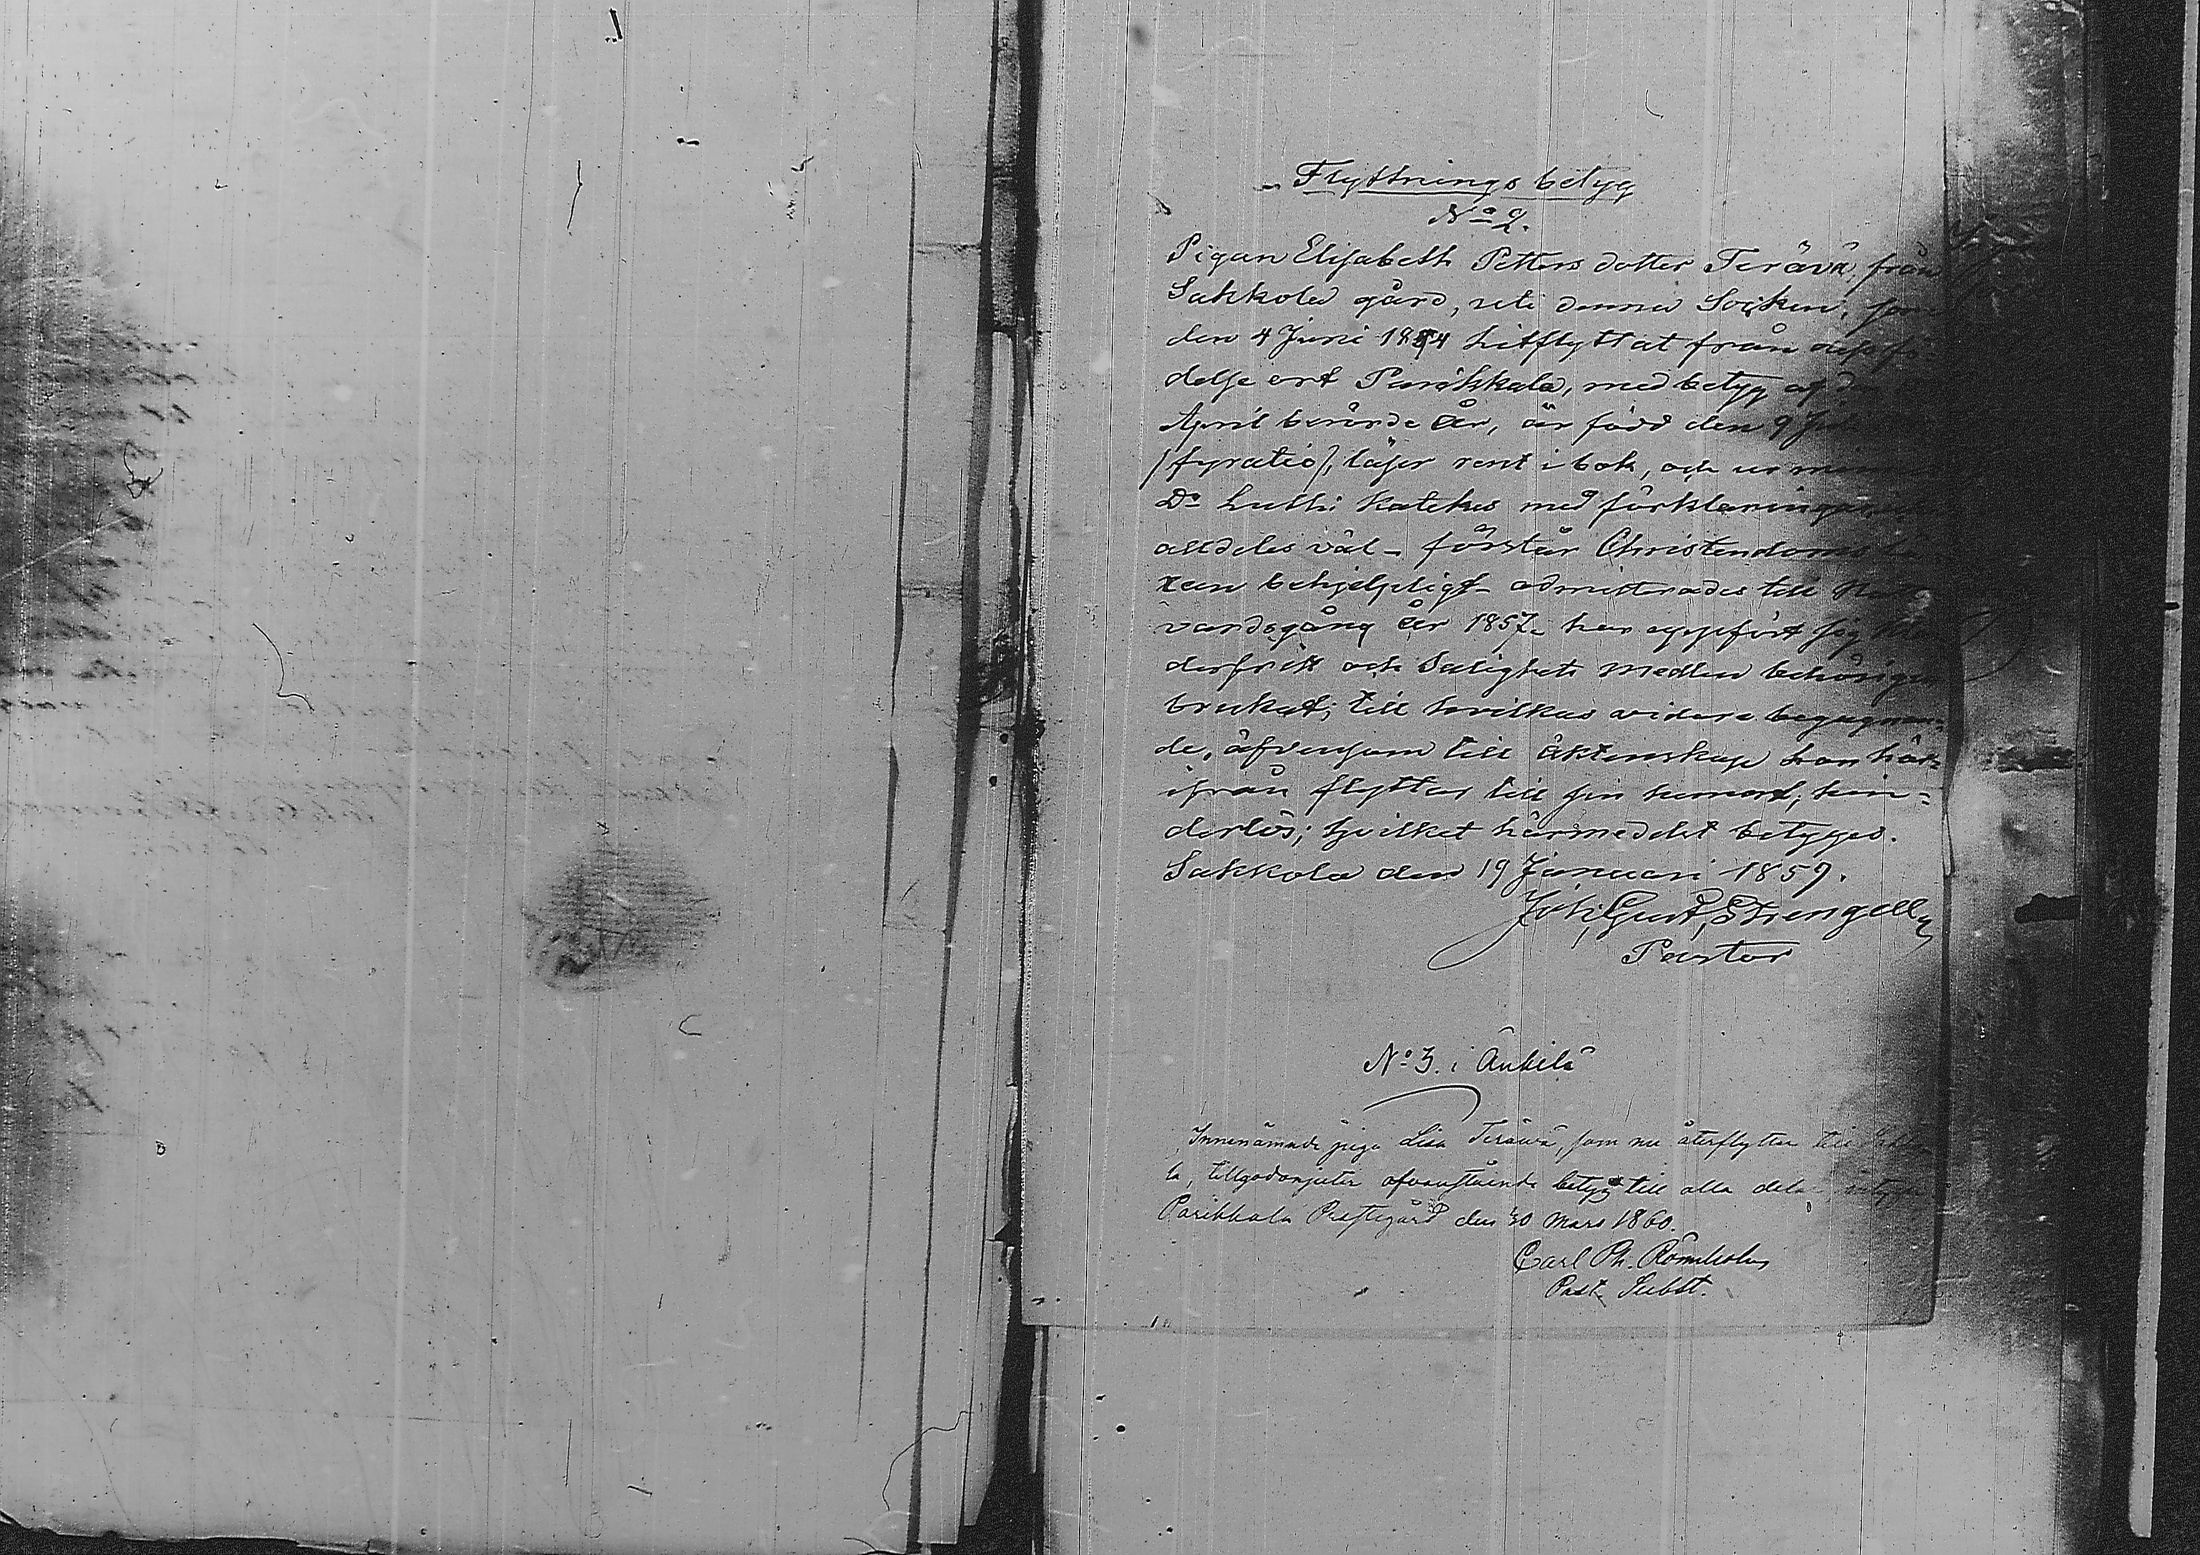 Flyttningsbetyg
No 2.
Pigan Elisabeth Petters dotter Terävä, från
Sakkola gård, uti denna Socken, som
den 4 Juni 1854 hitflyttat från dess fö-
delse ort Parikkala, med betyg af den
April berörde år, är född den 9 Juli
/fyratio/, läser rent i bok, och ur min
Dr Luth: Katekes med förklaringar
alldeles väl - förstår Christendoms lä-
ran behjelpligt - admitterades till Natt-
vardsgång år 1857 - har uppfört sig kla-
derfritt och Salighets medlen behörigen
brukat; till hvilkas vidare begagnan-
de, äfvensom till äktenskap hon här-
ifrån flyttar till sin hemort, hin-
derlös; hvilket härmedelst betygas.
Sakkola den 19 Januari 1859.
Joh: Gust. Strengell
Pastor
No 3. i Änkilä
Innenämnde piga Lisa Terävä, som nu återflyttar till Sakko-
la, tillgodonjuter ofvanstående betyg till alla delar
Parikkala Prestegård den 30 Mars 1860.
Carl Ph.
Past. Subst.